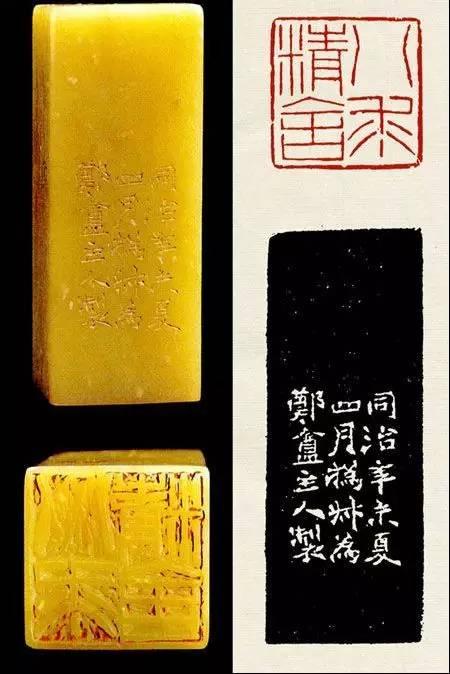 同治辛未夏
四月撝叔為
鄭盦主人製
八求
精舍
同治辛未夏
四月撝叔為
鄭盦主人製